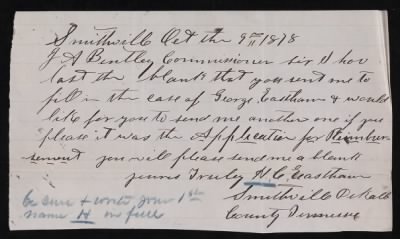 Smithvill Oct the 9th 1878
J. A Bentley Commissioner sir I hav
lost the blank that you sent me to
fill in the case of George Eastham & would
like for you to send me another one if you
please it was the Application for Reimbur-
sement you will please send me a blank
yours Truley H. C. Eastham
Smithville DeKalb
County Tennessee
be sure & write your 1st
name H in full